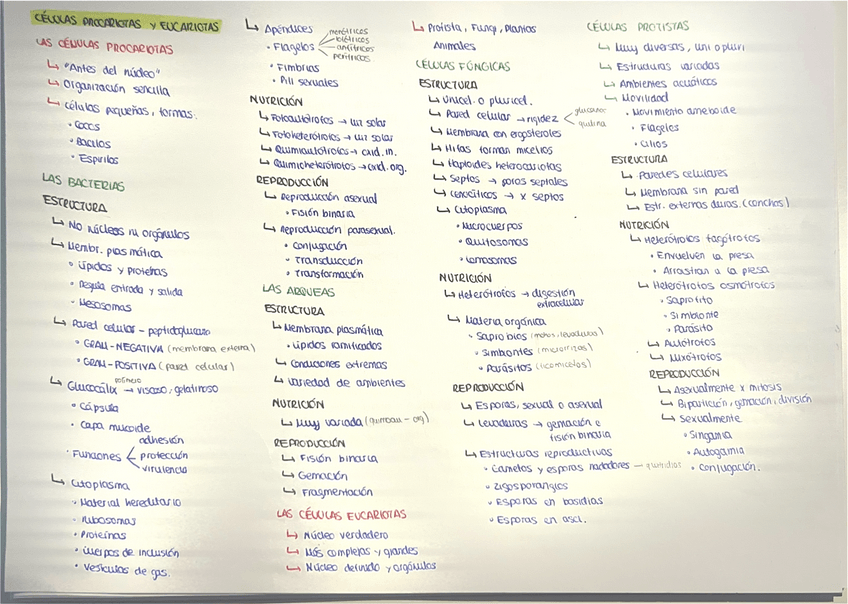 CÉLULAS PROCARIOTAS Y EUCARIOTAS
LAS CÉLULAS PROCARIOTAS
↳ "Antes del núcleo"
↳ Organización sencilla
↳ Células pequeñas, formas.
• Cocos
• Bacilos
• Espirilos
LAS BACTERIAS
ESTRUCTURA
↳ No núcleos ni orgánulos
↳ Membr. plasmática
• Lípidos y proteínas
• Regula entrada y salida
• Mesosomas
↳ Pared celular - peptidoglucano
• GRAM-NEGATIVA (membrana externa)
• GRAM-POSITIVA (pared celular)
↳ Glucocálix → viscoso, gelatinoso
• Cápsula
• Capa mucoide
• Funciones
adhesión
protección
virulencia
↳ Citoplasma
• Material hereditario
• Ribosomas
• Proteínas
• Cuerpos de inclusión
• Vesículas de gas.
↳ Apéndices
• Flagelos
monótricos
lofótricos
anfítricos
perítricos
• Fimbrias
• Pili sexuales
NUTRICIÓN
↳ Fotoautótrofos → luz solar
↳ Fotoheterótrofos → luz solar
↳ Quimioautótrofos → oxid. in.
↳ Quimioheterótrofos → oxid. org.
REPRODUCCIÓN
↳ Reproducción asexual
• Fisión binaria
↳ Reproducción parasexual.
• Conjugación
• Transducción
• Transformación
LAS ARQUEAS
ESTRUCTURA
↳ Membrana plasmática
• Lípidos ramificados
↳ Condiciones extremas
↳ Variedad de ambientes
NUTRICIÓN
↳ Muy variada (quimioau - org)
REPRODUCCIÓN
↳ Fisión binaria
↳ Gemación
↳ Fragmentación
LAS CÉLULAS EUCARIOTAS
↳ Núcleo verdadero
↳ Más complejas y grandes
↳ Núcleo definido y orgánulos
↳ Protista, Fungi, Plantas
Animales
CÉLULAS FÚNGICAS
ESTRUCTURA
↳ Unicel. o pluricel.
↳ Pared celular → rigidez
quitina
↳ Membrana con ergosteroles
↳ Hifas forman micelios
↳ Haploides heterocariotas
↳ Septos → poros septales
↳ Cenocíticos → x septos
↳ Citoplasma
• Microcuerpos
• Quitosomas
• Lomasomas
NUTRICIÓN
↳ Heterótrofos → digestión
extracelular
↳ Materia orgánica
• Saprobios (mohos, levaduras)
• Simbiontes (micorrizas)
• Parásitos (oomicetos)
REPRODUCCIÓN
↳ Esporas, sexual o asexual
↳ Levaduras → gemación e
fisión binaria
↳ Estructuras reproductivas
• Gametos y esporas nadadores - quitridias
• Zigosporangios
• Esporas en basidias
• Esporas en asci.
CÉLULAS PROTISTAS
↳ Muy diversas, uni o pluri
↳ Estructuras variadas
↳ Ambientes acuáticos
↳ Movilidad
• Movimiento ameboide
• Flagelos
• Cilios
ESTRUCTURA
↳ Paredes celulares
↳ Membrana sin pared
↳ Estr. externas duras. (conchas)
NUTRICIÓN
↳ Heterótrofos fagótrofos
• Envuelven la presa
• Arrastran a la presa
↳ Heterótrofos osmótrofos
• Saprofito
• Simbionte
• Parásito
↳ Autótrofos
↳ Mixótrofos
REPRODUCCIÓN
↳ Asexualmente x mitosis
↳ Bipartición, gemación, división
↳ Sexualmente
• Singamia
• Autogamia
• Conjugación.